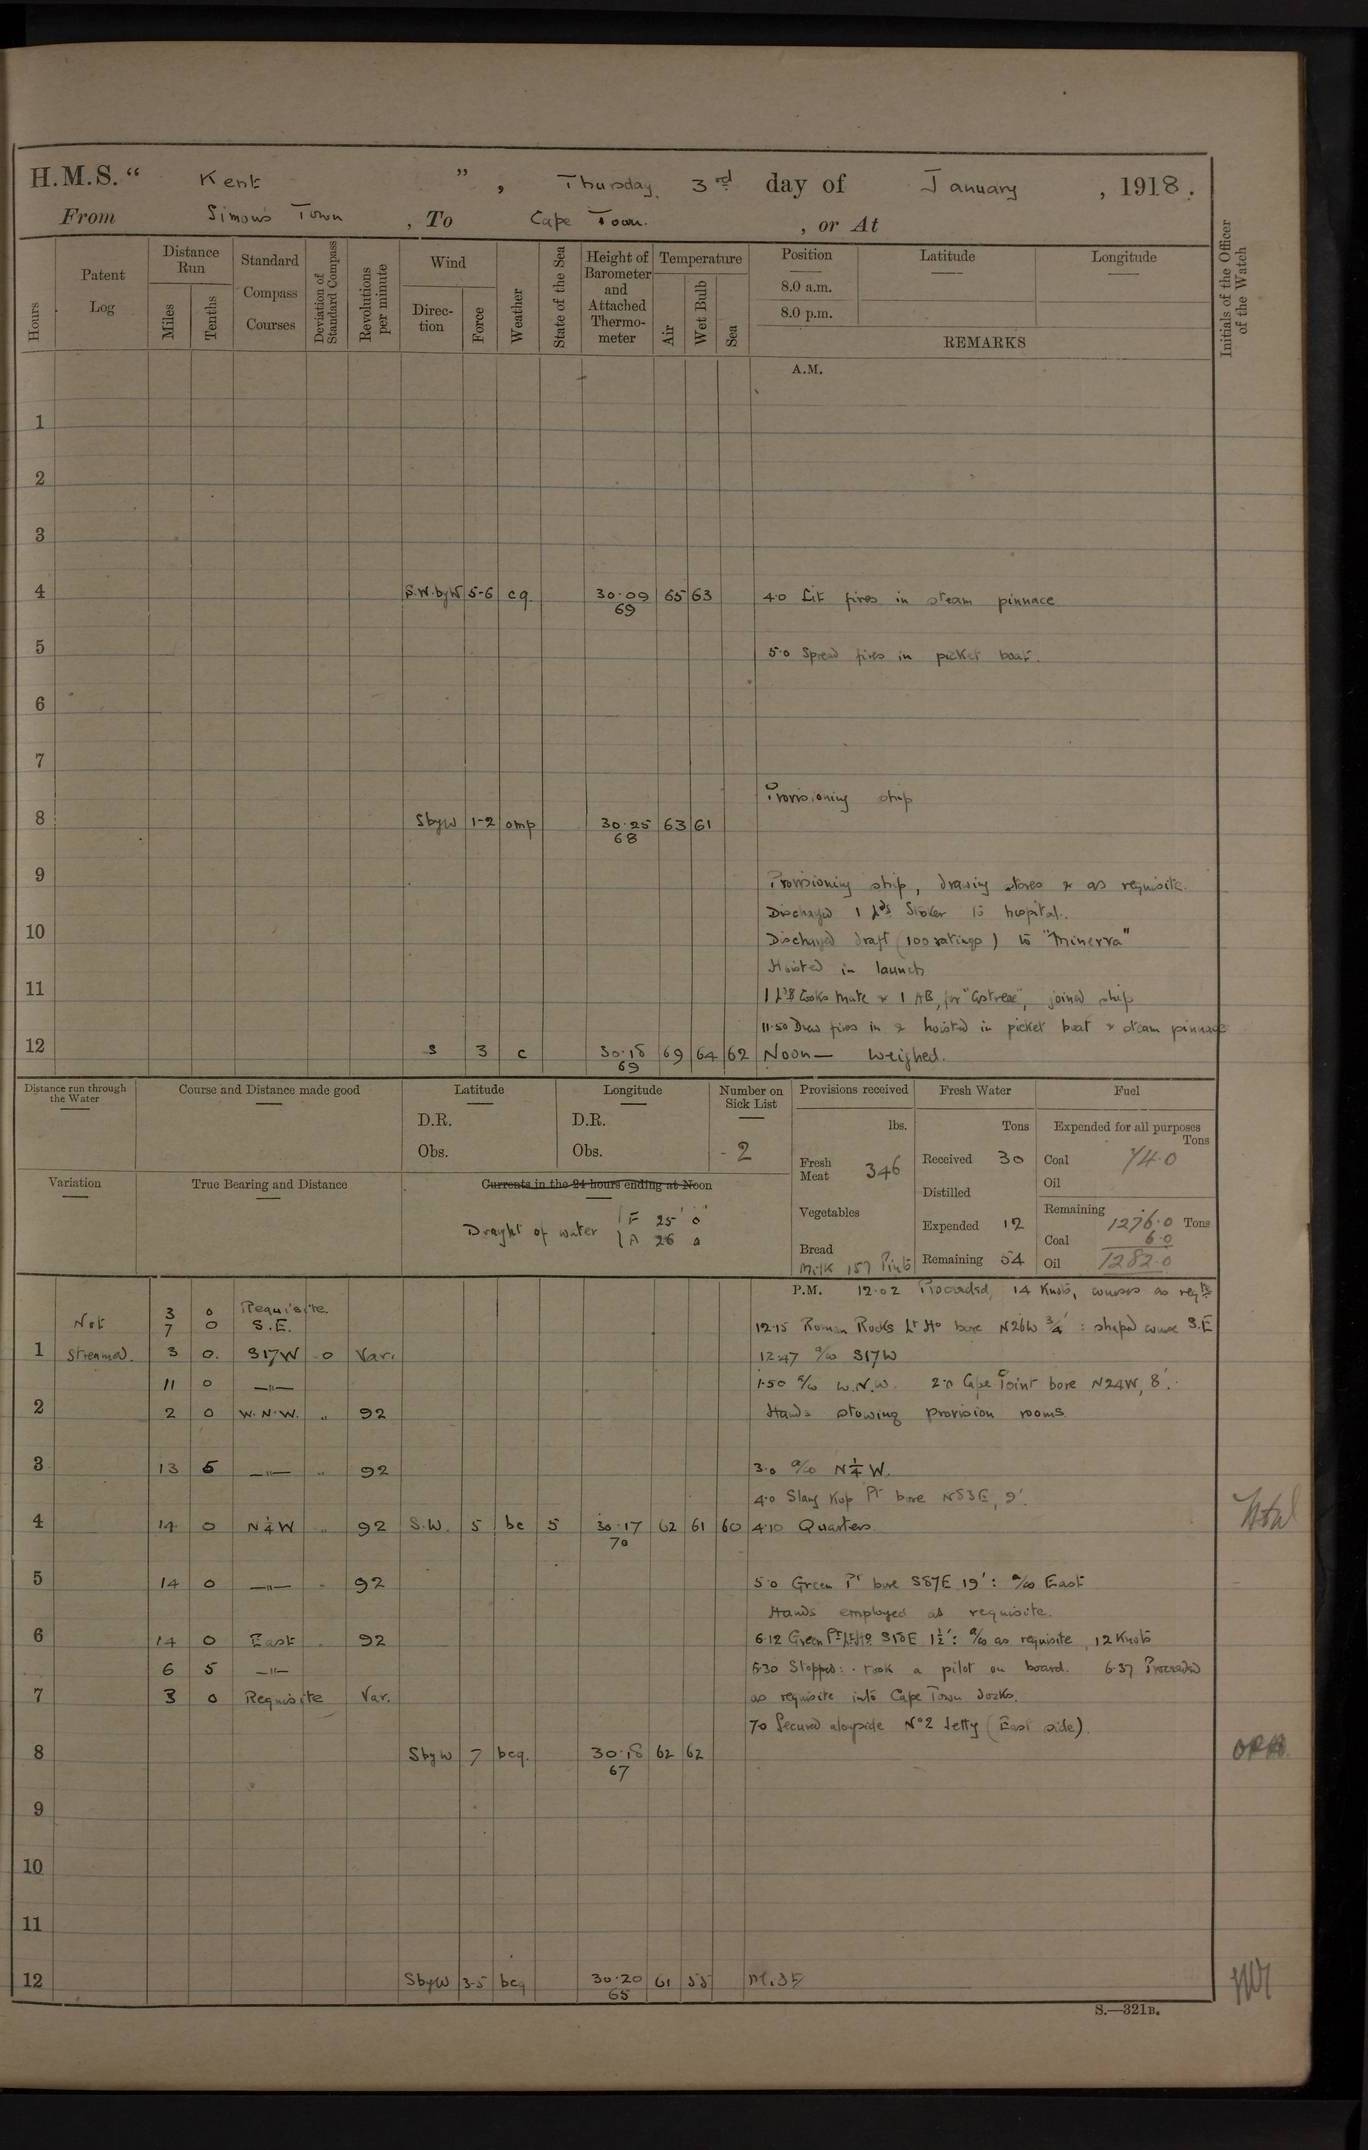 H.M.S. " Kent ", Thursday 3rd day of January, 1918.
From Simons Town, To Cape Town., or At
Hours
Patent Log
Distance Run
Miles
Tenths
Standard Compass Courses
Deviation of Standard Compass
Revolutions per minute
Wind
Direction
Force
Weather
State of the Sea
Height of Barometer and Attached Thermometer
Temperature
Air
Wet Bulb
Sea
Position
8.0 a.m.
8.0 p.m.
Latitude
Longitude
REMARKS
Initials of the Officer of the Watch
A.M.
1
2
3
4 S.W.byW 5-6 cq. 30.09 65 63 4.0 Lit fires in steam pinnace
69
5 5.0 Spread fires in picket boat.
6
7
Provisioning ship
8 SbyW 1-2 omp 30.25 63 61
68
9 Provisioning ship, drawing stores & as requisite.
Discharged 1 Ldg Stoker to hospital.
10 Discharged draft (100 ratings) to "Minerva"
Hoisted in launch
11 1 Ldg Cooks Mate & 1 AB, for "Astrea", joined ship
11.50 Drew fires in & hoisted in picket boat & steam pinnace
12 S 3 c 30.18 69 64 62 Noon — Weighed.
69
Distance run through the Water
Course and Distance made good
Latitude
D.R.
Obs.
Longitude
D.R.
Obs.
Number on Sick List
2
Provisions received
lbs.
Fresh Meat 346
Vegetables
Bread
Milk 157 Pints
Fresh Water
Tons
Received 30
Distilled
Expended 12
Remaining 54
Fuel
Expended for all purposes
Tons
Coal 74.0
Oil
Remaining
1276.0 Tons
Coal 6.0
Oil 1282.0
Variation
True Bearing and Distance
Currents in the 24 hours ending at Noon
Draught of water F 25' 0"
A 26 0
P.M. 12.02 Proceeded, 14 Knots, courses as reqte
3 0 Requisite
Not 7 0 S.E. 12.15 Roman Rocks Lt Ho bore N26W 3/4' : shaped course S.E
1 Streamed. 3 0. S17W 0 Var. 12.47 a/co S17W
11 0 —"— 1.50 a/co W.N.W. 2.0 Cape Point bore N24W, 8'.
2 2 0 W.N.W. " 92 Hands stowing provision rooms
3 13 5 —"— " 92 3.0 a/co N¼W.
4.0 Slang Kop Pt bore N53E, 9'.
4 14 0 N¼W " 92 S.W. 5 bc 5 30.17 62 61 60 4.10 Quarters
70
5 14 0 —"— " 92 5.0 Green Pt bore S87E 19' : a/co East
Hands employed as requisite.
6 14 0 East " 92 6.12 Green Pt Lt Ho S18E 1½' : a/co as requisite, 12 Knots
6 5 —"— 6.30 Stopped : took a pilot on board. 6.37 Proceeded
7 3 0 Requisite Var. as requisite into Cape Town docks.
7.0 Secured alongside No 2 Jetty (East side).
8 SbyW 7 bcq. 30.18 62 62
67
9
10
11
12 SbyW 3-5 bcq 30.20 61 55
65
S.—321B.